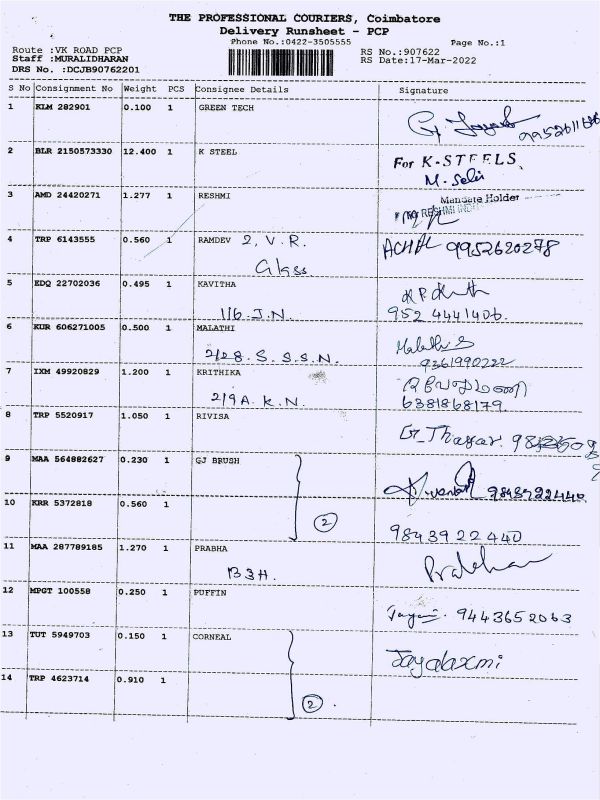 THE PROFESSIONAL COURIERS, Coimbatore
Delivery Runsheet - PCP
Phone No.:0422-3505555 Page No.:1
Route :VK ROAD PCP RS No.:907622
Staff :MURALIDHARAN RS Date:17-Mar-2022
DRS No. :DCJB90762201
S No Consignment No Weight PCS Consignee Details Signature
1 KLM 282901 0.100 1 GREEN TECH
2 BLR 2150573330 12.400 1 K STEEL For K-STEELS,
M. Selvi
3 AMD 24420271 1.277 1 RESHMI Mandate Holder
4 TRP 6143555 0.560 1 RAMDEV 2, V. R. 9952620278
Glass
5 EDQ 22702036 0.495 1 KAVITHA
116 J.N. 952 4441406.
6 KUR 606271005 0.500 1 MALATHI Malathi S
2/28. S. S. S. N. 9361990222
7 IXM 49920829 1.200 1 KRITHIKA
219A. K. N. 6381868179.
8 TRP 5520917 1.050 1 RIVISA
9 MAA 564882627 0.230 1 GJ BRUSH
10 KRR 5372818 0.560 1 2
9843922440
11 MAA 287789185 1.270 1 PRABHA
B3H.
12 MPGT 100558 0.250 1 PUFFIN
9443652063
13 TUT 5949703 0.150 1 CORNEAL Jayalaxmi
14 TRP 4623714 0.910 1 2